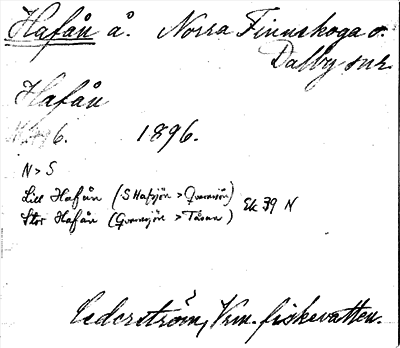 Hafån å. Norra Finnskoga o.
Dalby snr
Hafån
6. 1896.
N > S
Lill Hafån (S Hafsjön > Qvarnsjön)
Stor Hafån (Qvarnsjön > Tåsan) Ek 39 N
Cederström, Vrm. fiskevatten.